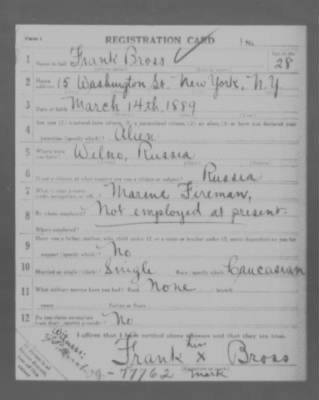 Form 1 REGISTRATION CARD No.
1 Name in full Frank Bross Age in yrs. 28
2 Home address 15 Washington St. New York, N.Y.
3 Date of birth March 14th 1889
4 Are you (1) a natural-born citizen, (2) a naturalized citizen, (3) an alien, (4) or have you declared your
intention (specify which)? Alien
5 Where were you born? Wilno, Russia
6 If not a citizen, of what country are you a citizen or subject? Russia
7 What is your present trade, occupation, or office? Marine Fireman,
8 By whom employed? Not employed at present.
Where employed?
9 Have you a father, mother, wife, child under 12, or a sister or brother under 12, solely dependent on you for
support (specify which)? No
10 Married or single (which)? Single Race (specify which)? Caucasian
11 What military service have you had? Rank None branch
years Nation or State
12 Do you claim exemption from draft (specify grounds)? No
I affirm that I have verified above answers and that they are true.
his
Frank x Bross
mark
Witness:
77762